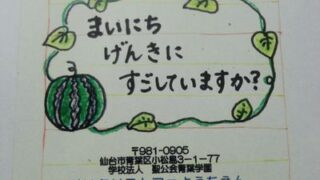 まいにち
げんきに
すごしていますか?
〒981-0905
仙台市青葉区小松島3-1-77
学校法人 聖公会青葉学園